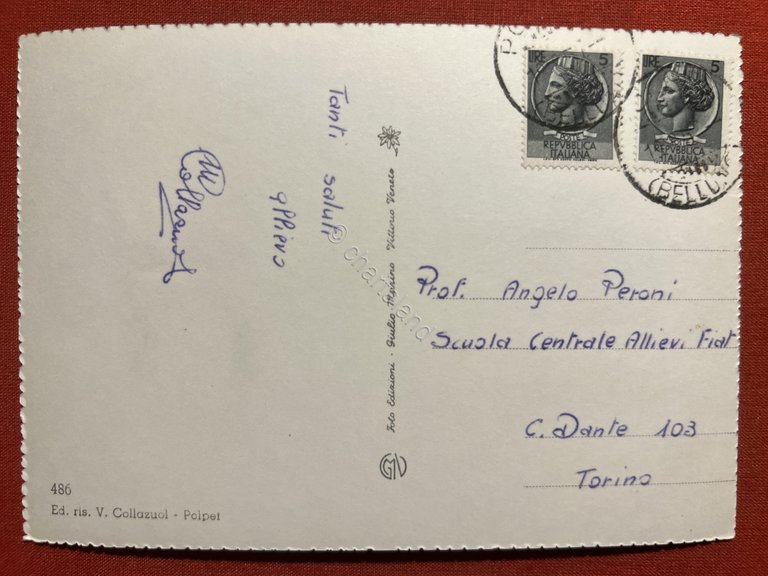 Tanti saluti
allievo
Collazuol
Foto Edizioni - Giulio Marino Vittorio Veneto
486
Ed. ris. V. Collazuol - Polpet
LIRE 5
POSTE
REPVBBLICA
ITALIANA
LIRE 5
POSTE
REPVBBLICA
ITALIANA
(BELLUNO)
Prof. Angelo Peroni
Scuola Centrale Allievi Fiat
C. Dante 103
Torino